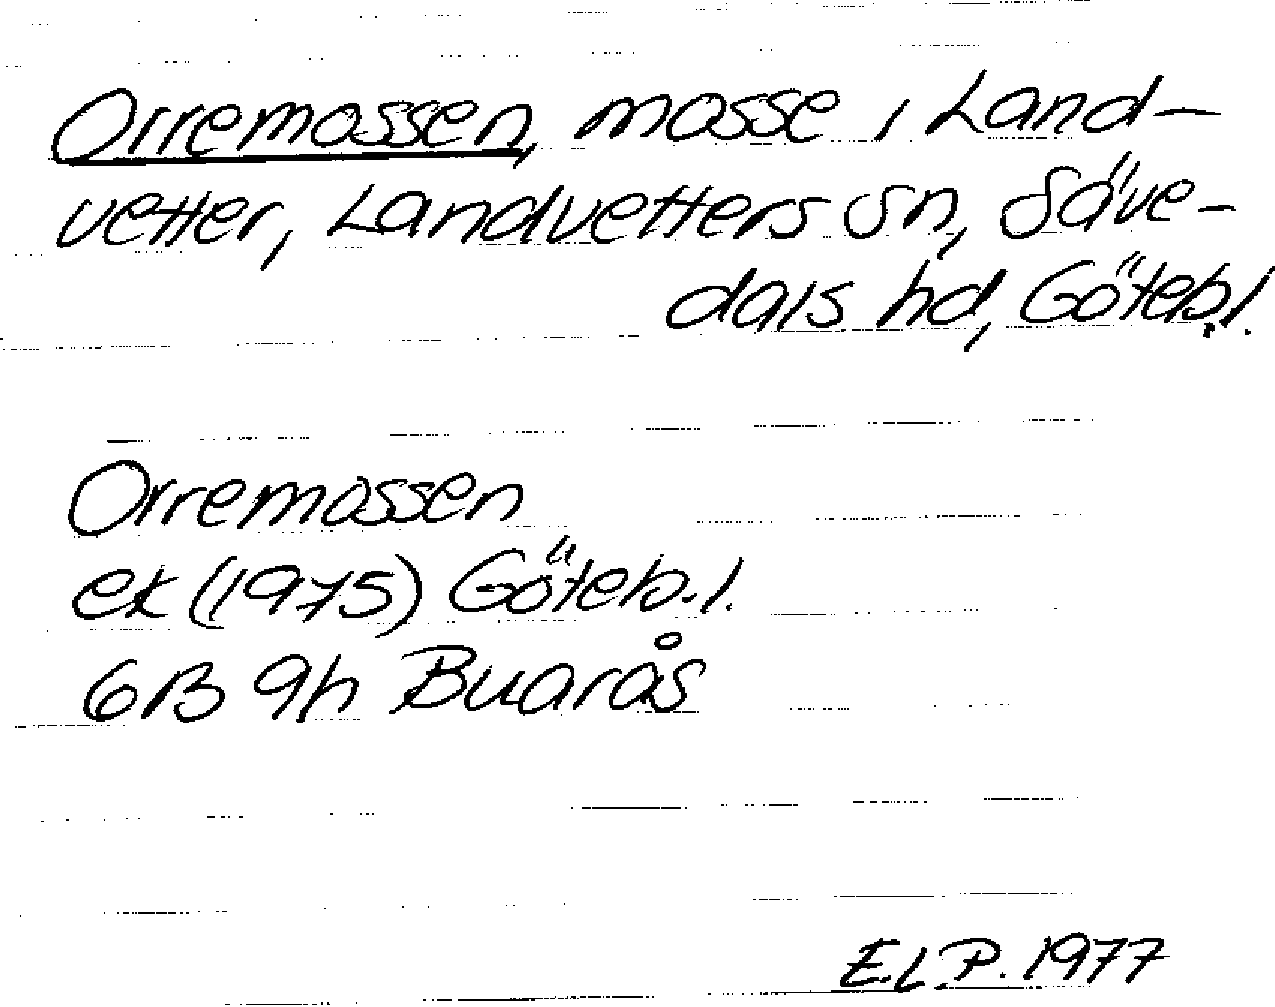 Orremossen, mosse i Land-
vetter, Landvetters sn, Säve-
dals hd, Göteb. l.
Orremossen
ek (1975) Göteb. l.
6B 9h Buarås
E.L.P. 1977